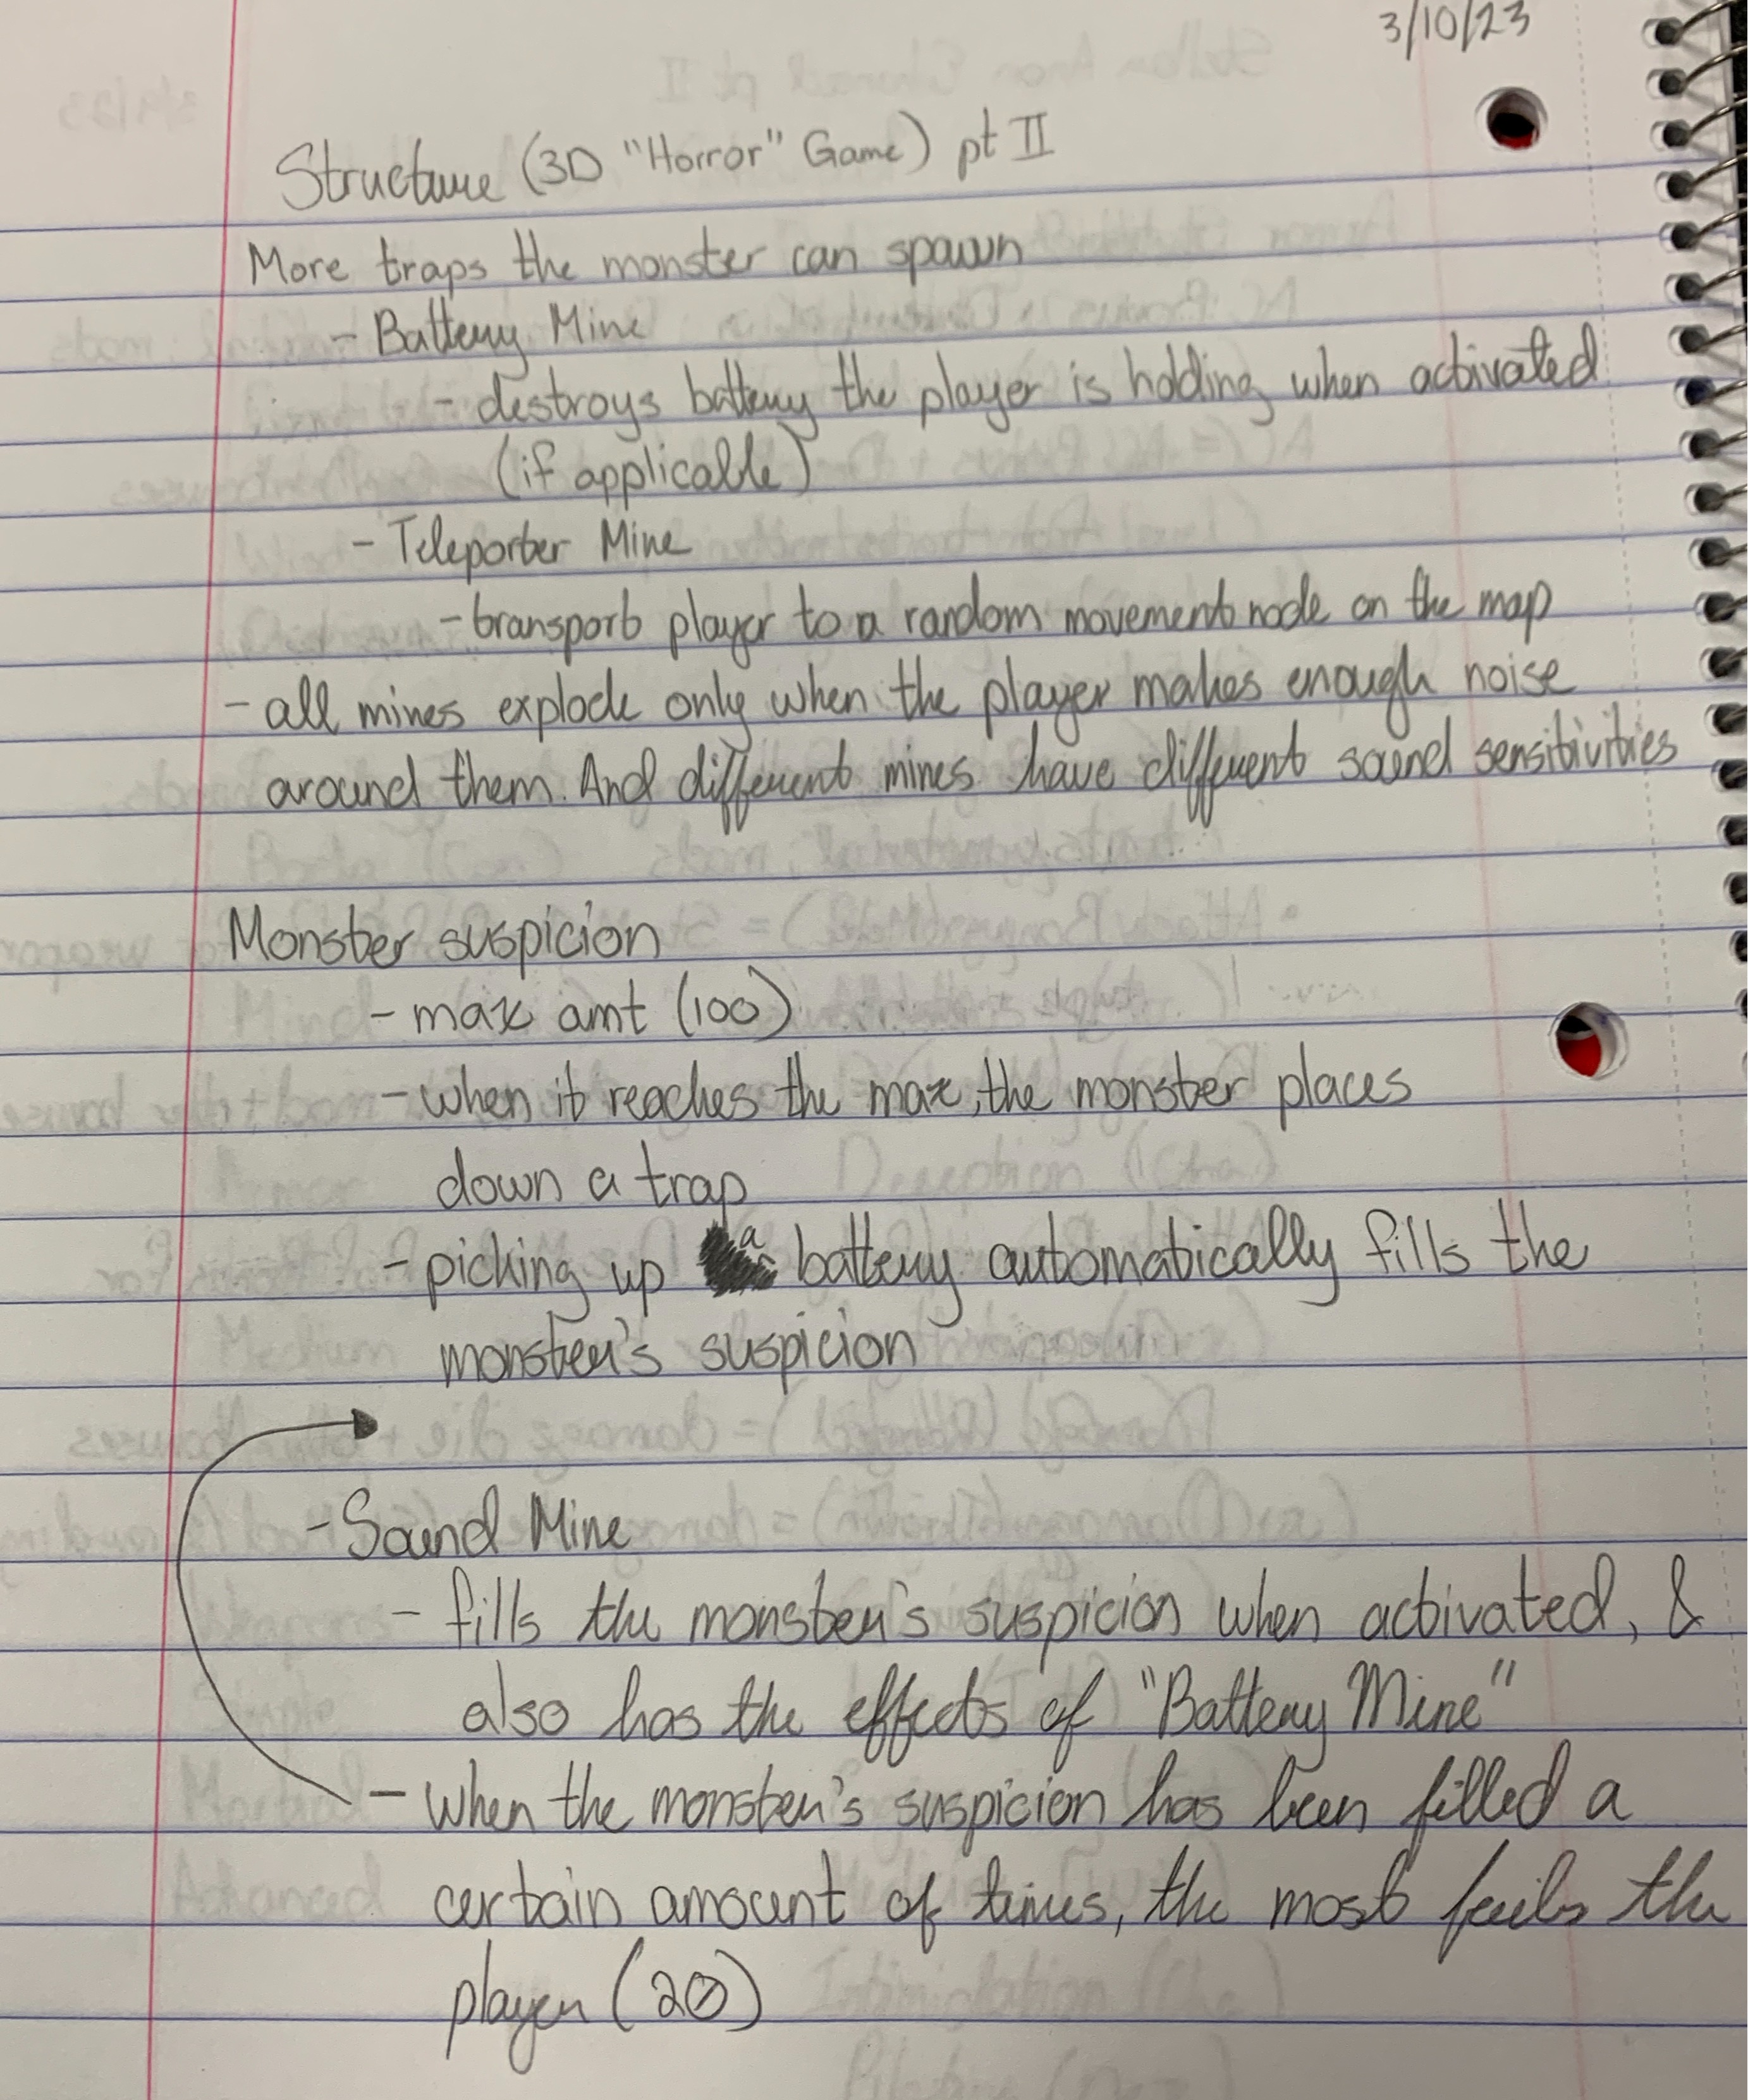 3/10/23
Structure (3D "Horror" Game) pt II
More traps the monster can spawn
- Battery Mine
- destroys battery the player is holding when activated
(if applicable)
- Teleporter Mine
- transport player to a random movement node on the map
- all mines explode only when the player makes enough noise
around them. And different mines have different sound sensitivities
Monster suspicion
- max amt (100)
- when it reaches the max, the monster places
down a trap
- picking up a battery automatically fills the
monster's suspicion
- Sound Mine
- fills the monster's suspicion when activated, &
also has the effects of "Battery Mine"
- when the monster's suspicion has been filled a
certain amount of times, the most the
player (20)